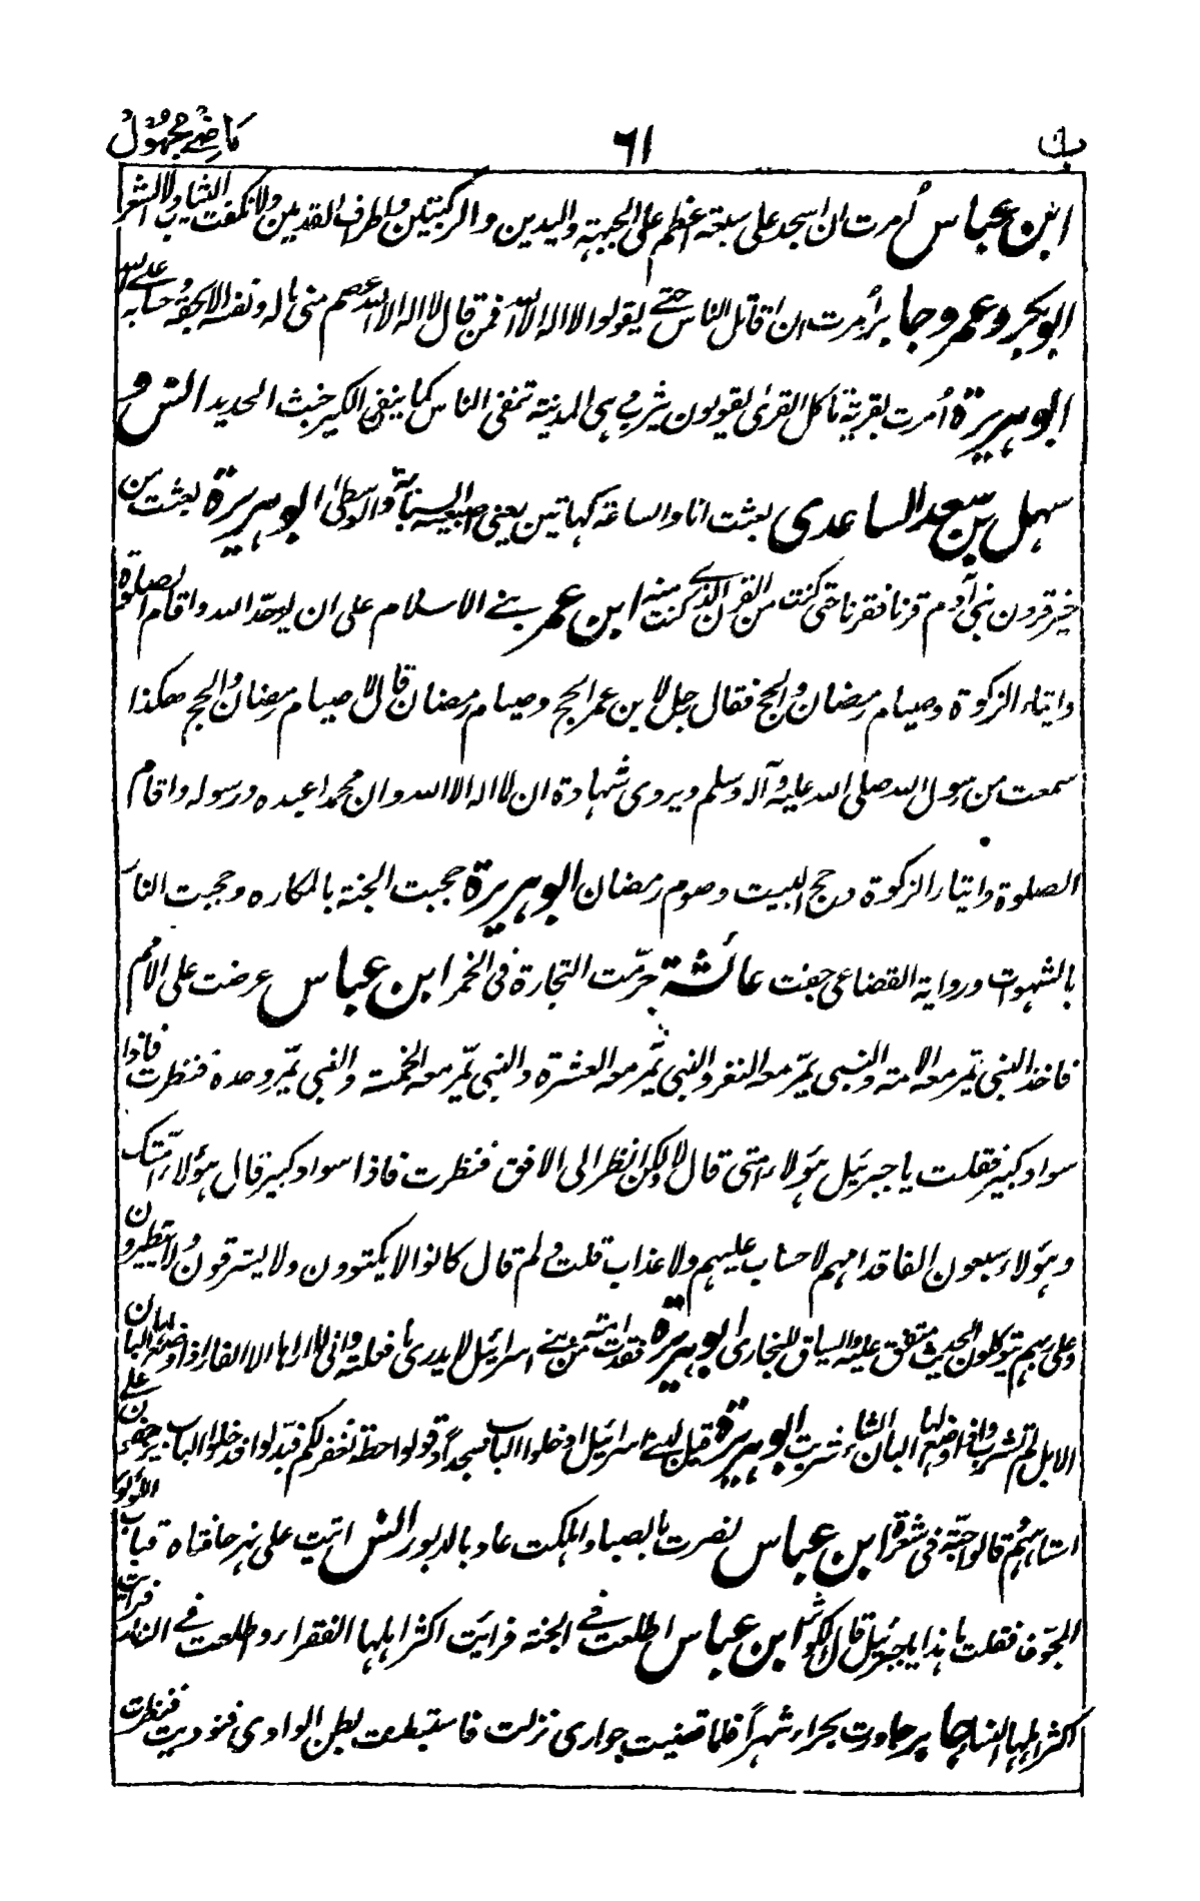 ب ٦١ ماضے مجہول
ابن عباس اُمرت ان اسجد علی سبعۃ اعظم علی الجبہۃ والیدین والرکبتین واطراف القدمین ولا نکفت الثیاب ولا الشعر
ابو بکر وعمر وجابر اُمرت ان اقاتل الناس حتے یقولوا لا الہ الا اللہ فمن قال لا الہ الا اللہ عصم منی مالہ ونفسہ الا بحقہ وحسابہ علے اللہ
ابو ہریرۃ اُمرت بقریۃ تاکل القرٰی یقولون یثرب وہی المدینۃ تنفی الناس کما ینفی الکیر خبث الحدید انس و
سہل بن سعد الساعدی بعثت انا والساعۃ کہاتین یعنی اصبعیہ السبابۃ والوسطٰی ابو ہریرۃ بعثت من
خیر قرون بنی آدم قرنا فقرنا حتی کنت من القرن الذے کنت منہ ابن عمر بنے الاسلام علی ان یوحّد اللہ واقام الصلوۃ
وایتاء الزکوۃ وصیام رمضان والحج فقال رجل لابن عمر الحج وصیام رمضان قال لا صیام رمضان والحج ھکذا
سمعت من رسول اللہ صلی اللہ علیہ وآلہ وسلم ویروی شہادۃ ان لا الہ الا اللہ وان محمدا عبدہ ورسولہ واقام
الصلوۃ وایتاء الزکوۃ وحج البیت وصوم رمضان ابو ہریرۃ حجبت الجنۃ بالمکارہ وحجبت النار
بالشہوات وروایۃ القضاعی حفت عائشۃ حرّمت التجارۃ فی الخمر ابن عباس عرضت علی الامم
فاخذ النبی یمّر معہ الامۃ والنبی یمّر معہ النفر والنبی یمّر معہ العشرۃ والنبی یمّر معہ الخمسۃ والنبی یمّر وحدہ فنظرت فاذا
سواد کبیر فقلت یا جبرئیل ہؤلاء امتی قال لا ولکن انظر الی الافق فنظرت فاذا سواد کبیر قال ہؤلاء امّتک
وہؤلاء سبعون الفا قدامہم لا حساب علیہم ولا عذاب قلت ولم قال کانوا لا یکتوون ولا یسترقون ولا یتطیرون
وعلی ربہم یتوکلون الحدیث متفق علیہ والسیاق للبخاری ابو ہریرۃ فقدت امتہ من بنے اسرائیل لا یدری ما فعلت وانی لا اراہا الا الفار اذا وضع لہا البان
الابل لم تشرب واذا وضع لہا البان الشاء شربت ابو ہریرۃ قیل لبنے اسرائیل ادخلوا الباب سجداً وقولوا حطۃ نغفر لکم فبدّلوا فدخلوا الباب یزحفون علے
استاہہم وقالوا حبّۃ فی شعرۃ ابن عباس نصرت بالصبا واہلکت عاد بالدبور انس اتیت علی نہر حافتاہ قباب اللؤلؤ
المجوّف فقلت ما ہذا یا جبرئیل قال الکوثر ابن عباس اطلعت فے الجنۃ فرائیت اکثر اہلہا الفقراء واطلعت فے النار فرائیت
اکثر اہلہا النساء جابر جاورت بحراء شہراً فلما قضیت جواری نزلت فاستبطنت بطن الوادی فنودیت فنظرت